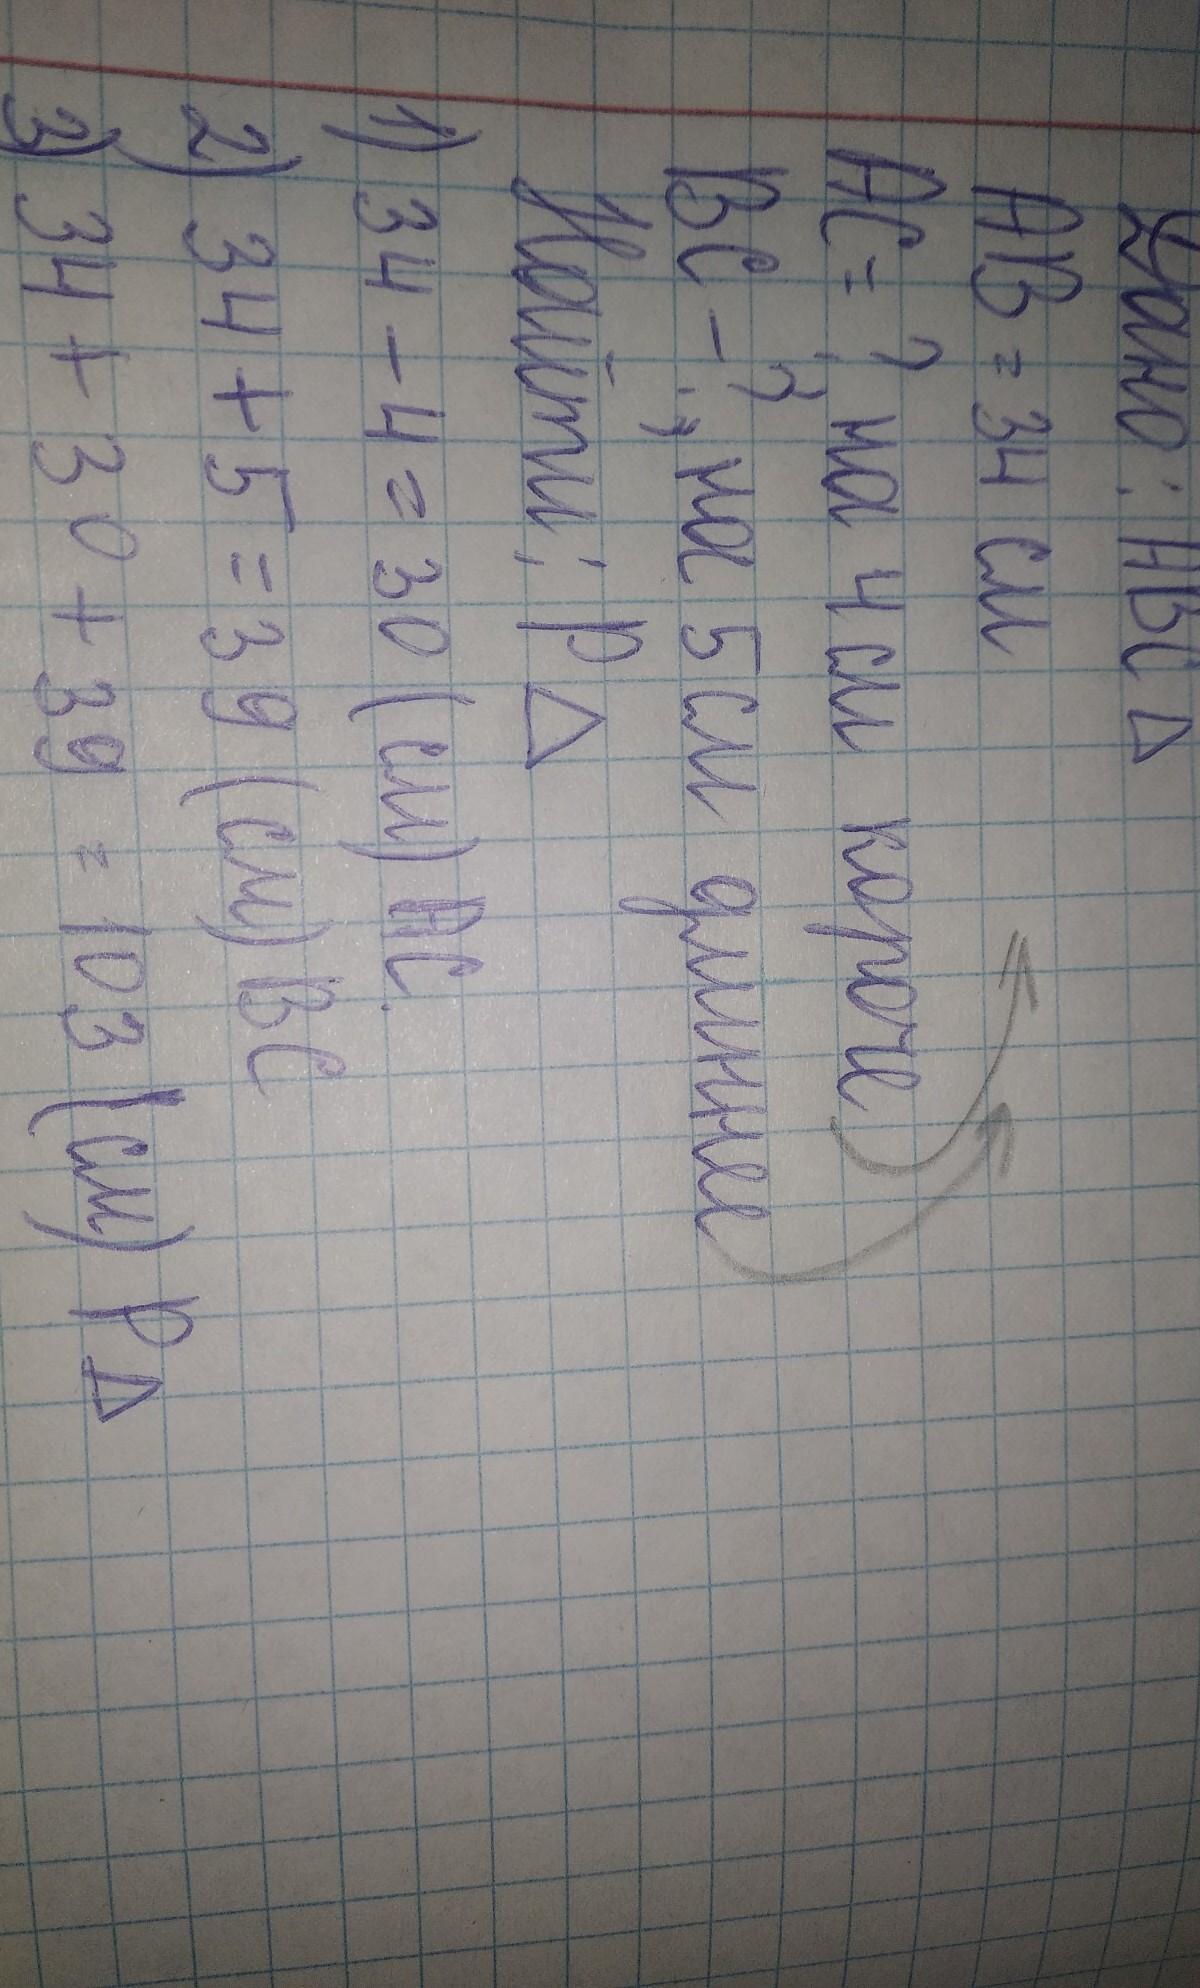 Дано: АВС △
АВ = 34 см
АС = ?, на 4 см короче
ВС - ?, на 5 см длиннее
Найти: Р △
1) 34 - 4 = 30 (см) АС.
2) 34 + 5 = 39 (см) ВС
3) 34 + 30 + 39 = 103 (см) Р △